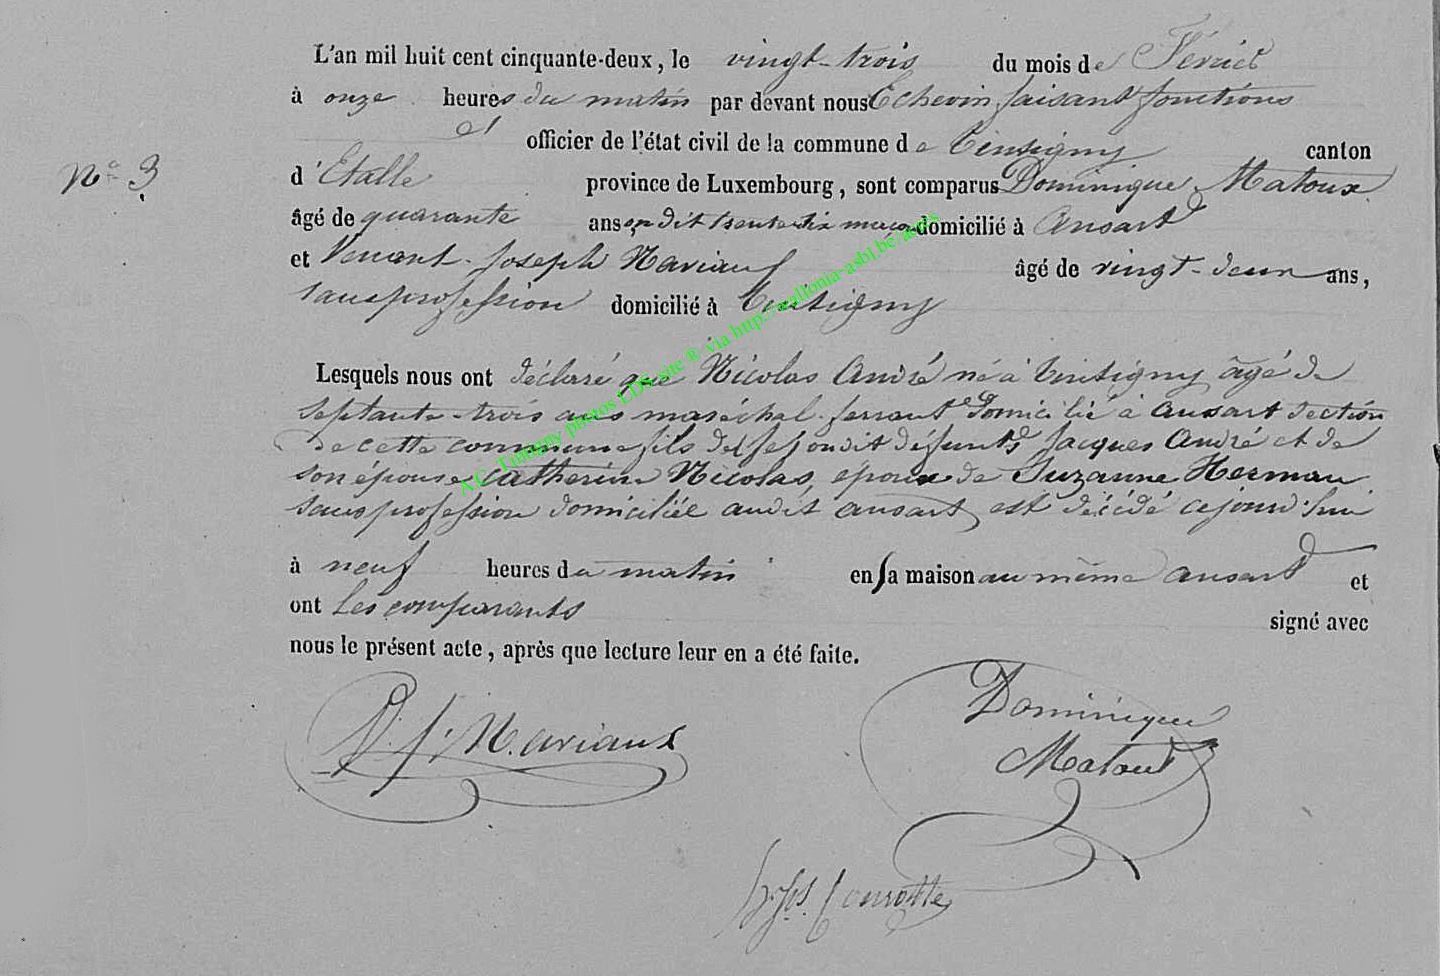 L'an mil huit cent cinquante-deux, le vingt-trois du mois de Février
à onze heures du matin par devant nous Echevin faisant fonctions
d' officier de l'état civil de la commune de Tintigny canton
N° 3
d'Etalle province de Luxembourg, sont comparus Dominique Matoux
âgé de quarante ans domicilié à ansart
et Joseph Mariaux âgé de vingt-deux ans,
sans profession domicilié à Tintigny
Lesquels nous ont déclaré que Nicolas André né à Tintigny âgé de
septante-trois ans maréchal-ferrant domicilié à ansart section
de cette commune fils de défunts Jacques André et de
son épouse Catherine Nicolas, époux de Suzanne Herman
sans profession domiciliée audit ansart, est décédé cejourd'hui
à neuf heures du matin en sa maison au même ansart et
ont les comparants signé avec
nous le présent acte, après que lecture leur en a été faite.
A.C. Tintigny photos LDS site ® via http://wallonia-asbl.be/actes
Mariaux
Dominique
Matoux